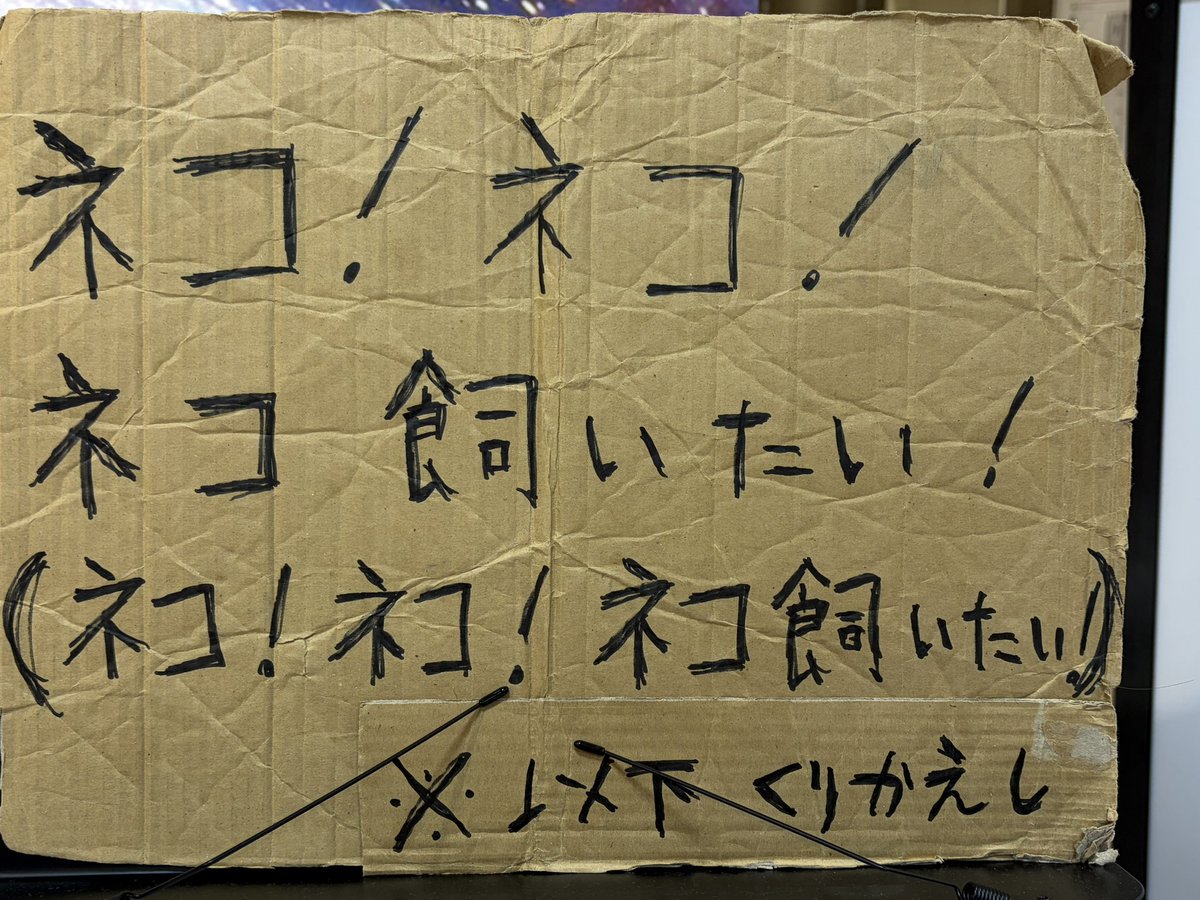 ネコ！ネコ！
ネコ飼いたい！
(ネコ！ネコ！ネコ飼いたい！)
※以下くりかえし